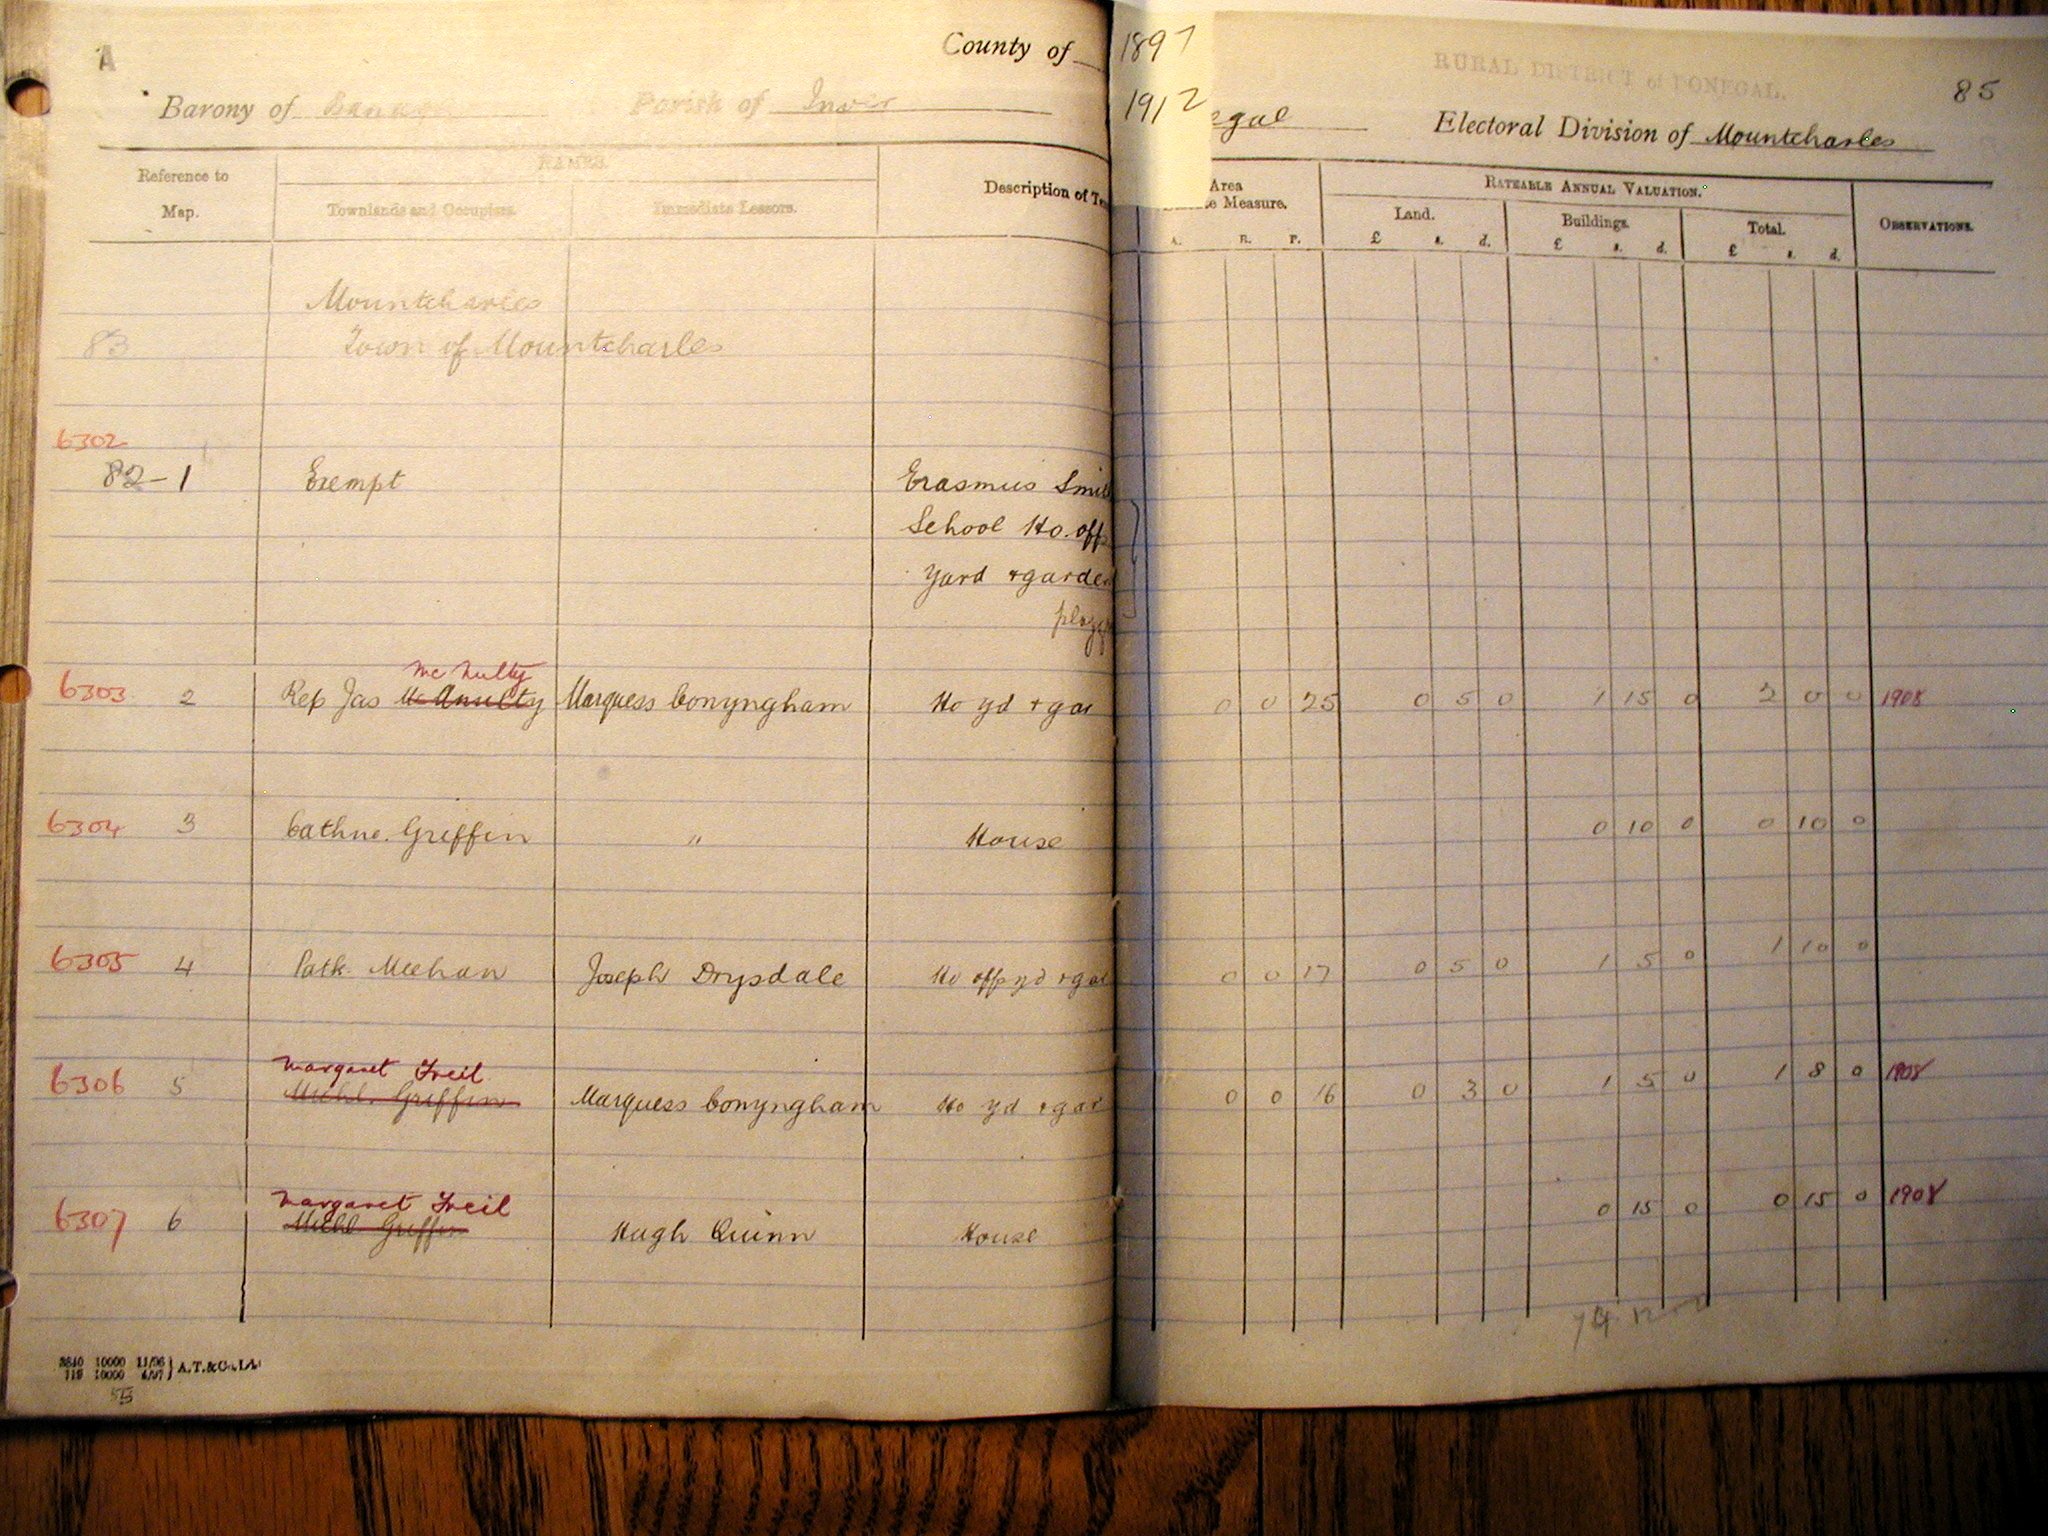 A
County of
1897
1912
egal
RURAL DISTRICT of DONEGAL.
85
Barony of Banagh Parish of Inver
Electoral Division of Mountcharles
Reference to Map.
NAMES.
Townlands and Occupiers.
Immediate Lessors.
Description of Te
Area
e Measure.
A. R. P.
RATEABLE ANNUAL VALUATION.
Land.
£ s. d.
Buildings.
£ s. d.
Total.
£ s. d.
OBSERVATIONS.
Mountcharles
83 Town of Mountcharles
6302
82-1 Exempt Erasmus Smit
School Ho. offs
Yard & garden
playg
Mc Nulty
6303 2 Rep Jas Mc Anulty Marquess Conyngham Ho yd & gar 0 0 25 0 5 0 1 15 0 2 0 0 1908
6304 3 Cathne. Griffin " House 0 10 0 0 10 0
6305 4 Patk. Meehan Joseph Drysdale Ho offs yd & gar 0 0 17 0 5 0 1 5 0 1 10 0
Margaret Freil
6306 5 Michl. Griffin Marquess Conyngham Ho yd & gar 0 0 16 0 3 0 1 5 0 1 8 0 1908
Margaret Freil
6307 6 Michl Griffin Hugh Quinn House 0 15 0 0 15 0 1908
3640 10000 11/96
719 10000 4/97 } A.T.&Co.,Ld.